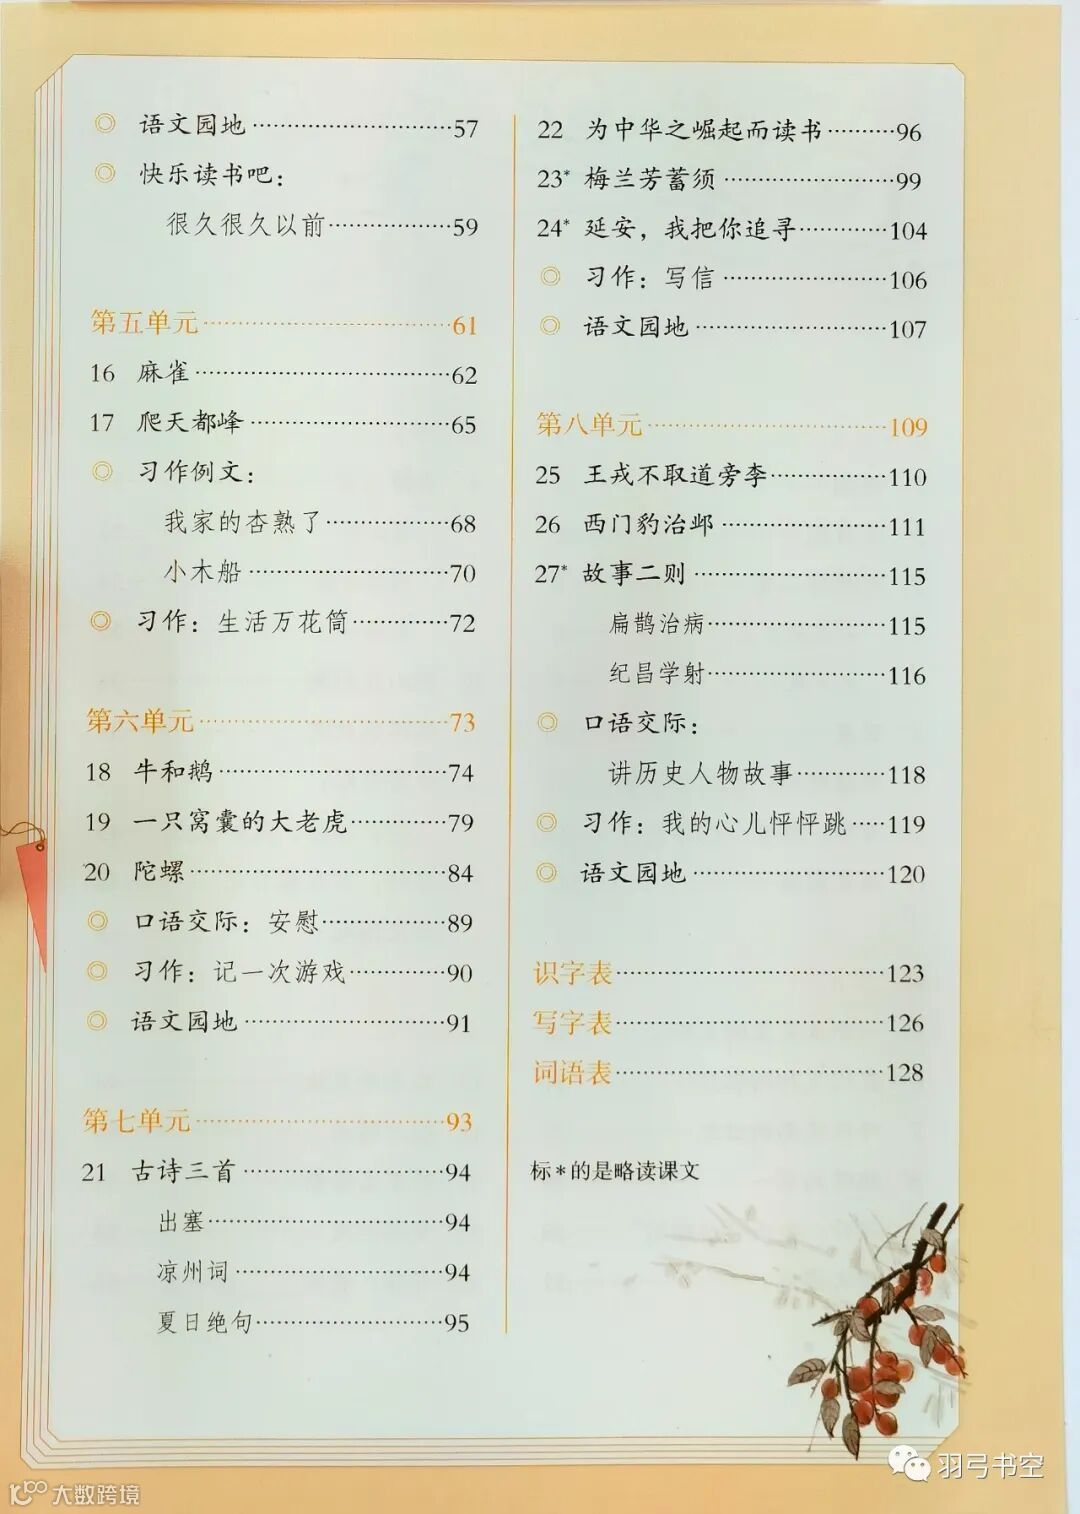 ◎ 语文园地……………………57
◎ 快乐读书吧：
很久很久以前………………59
第五单元……………………61
16 麻雀……………………62
17 爬天都峰……………………65
◎ 习作例文：
我家的杏熟了………………68
小木船……………………70
◎ 习作：生活万花筒……………72
第六单元……………………73
18 牛和鹅……………………74
19 一只窝囊的大老虎……………79
20 陀螺……………………84
◎ 口语交际：安慰……………89
◎ 习作：记一次游戏……………90
◎ 语文园地……………………91
第七单元……………………93
21 古诗三首……………………94
出塞……………………94
凉州词……………………94
夏日绝句……………………95
22 为中华之崛起而读书………96
23* 梅兰芳蓄须………………99
24* 延安，我把你追寻…………104
◎ 习作：写信………………106
◎ 语文园地………………107
第八单元……………………109
25 王戎不取道旁李…………110
26 西门豹治邺………………111
27* 故事二则………………115
扁鹊治病………………115
纪昌学射………………116
◎ 口语交际：
讲历史人物故事…………118
◎ 习作：我的心儿怦怦跳……119
◎ 语文园地………………120
识字表……………………123
写字表……………………126
词语表……………………128
标*的是略读课文
羽弓书空
大数跨境